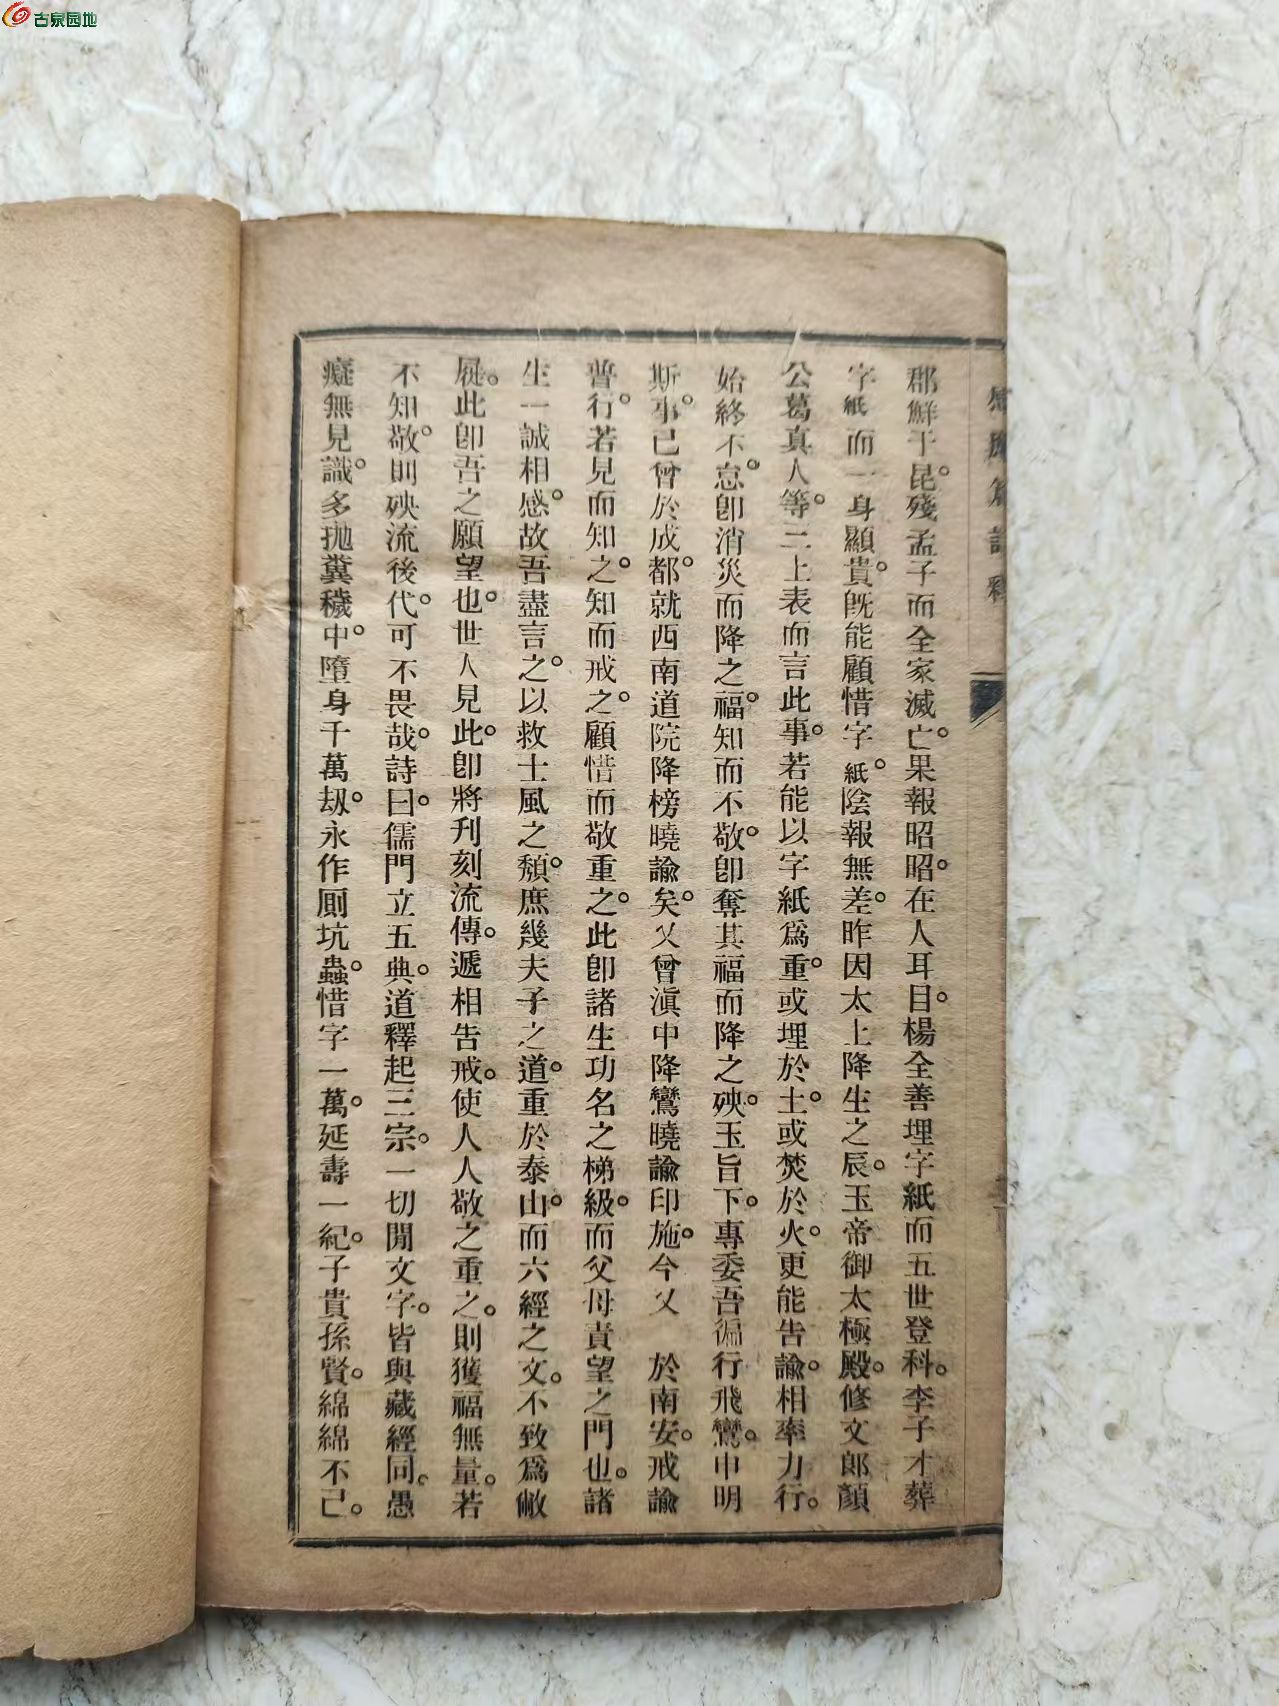 古泉园地
郡鮮于昆。殘孟子而全家滅亡。果報昭昭。在人耳目。楊全善埋字紙而五世登科。李子才葬
字紙而一身顯貴。旣能顧惜字紙。陰報無差。昨因太上降生之辰。玉帝御太極殿。修文郎顏
公葛真人等。三上表而言此事。若能以字紙爲重。或埋於土。或焚於火。更能告諭。相率力行。
始終不怠。卽消災而降之福。知而不敬。卽奪其福而降之殃。玉旨下。專委吾徧行飛鸞。申明
斯事。已曾於成都。就西南道院降榜曉諭矣。又曾滇中降鸞曉諭印施。今又 於南安。戒諭
普行。若見而知之。知而戒之。顧惜而敬重之。此卽諸生功名之梯級。而父母責望之門也。諸
生一誠相感。故吾盡言之。以救士風之頹。庶幾夫子之道。重於泰山。而六經之文。不致爲敝
屣。此卽吾之願望也。世人見此。卽將刋刻流傳。遞相告戒。使人人敬之重之。則獲福無量。若
不知敬。則殃流後代。可不畏哉。詩曰。儒門立五典。道釋起三宗。一切閒文字。皆與藏經同。愚
癡無見識。多拋糞穢中。墮身千萬刼。永作厠坑蟲。惜字一萬。延壽一紀。子貴孫賢。綿綿不已。